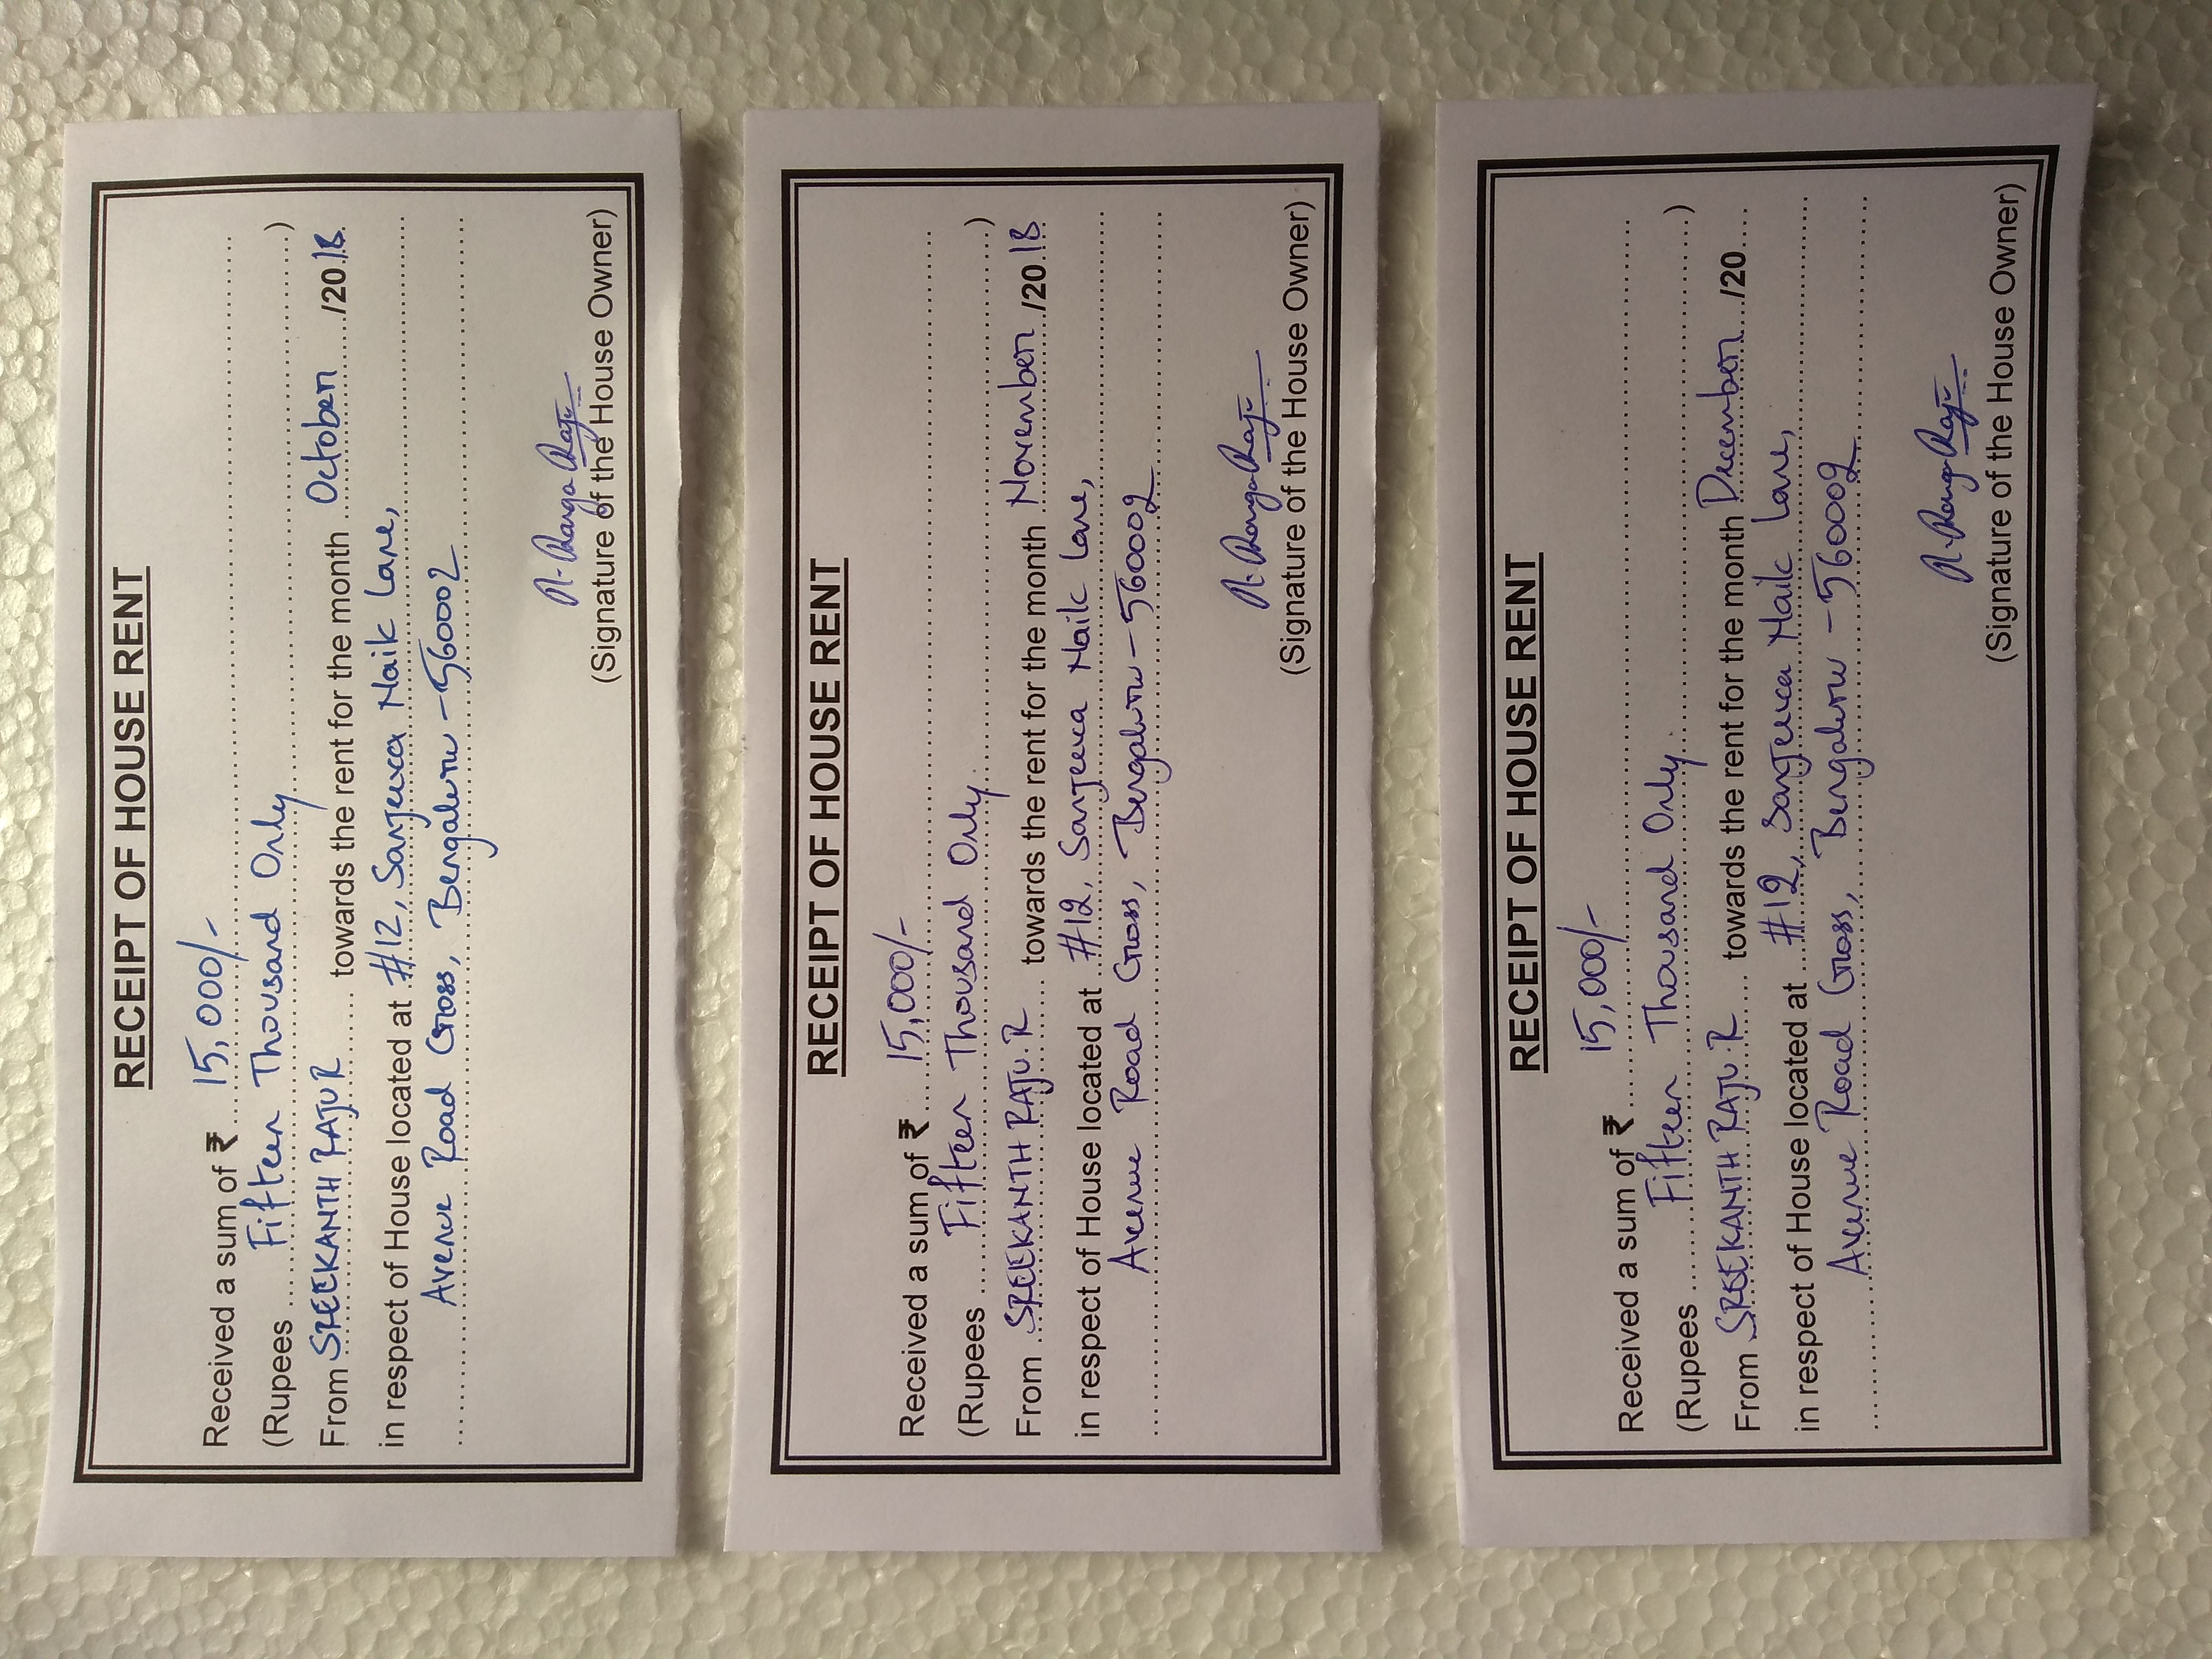 RECEIPT OF HOUSE RENT
Received a sum of ₹ 15,000/-
(Rupees Fifteen Thousand Only)
From SREEKANTH RAJU R towards the rent for the month October /2018
in respect of House located at #12, Sanjeeva Naik Lane,
Avenue Road Cross, Bengaluru - 560002
R. Ranga Raju
(Signature of the House Owner)
RECEIPT OF HOUSE RENT
Received a sum of ₹ 15,000/-
(Rupees Fifteen Thousand Only.)
From SREEKANTH RAJU.R towards the rent for the month November /2018
in respect of House located at #12, Sanjeeva Naik Lane,
Avenue Road Cross, Bengaluru - 560002
R. Ranga Raju
(Signature of the House Owner)
RECEIPT OF HOUSE RENT
Received a sum of ₹ 15,000/-
(Rupees Fifteen Thousand Only.)
From SREEKANTH RAJU.R towards the rent for the month December /20
in respect of House located at #12, Sanjeeva Naik Lane,
Avenue Road Cross, Bengaluru - 560002
R. Ranga Raju
(Signature of the House Owner)